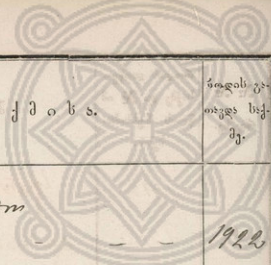 ქ მ ი ს ა.
როდის გა-
თავდა საქ-
მე.
1922